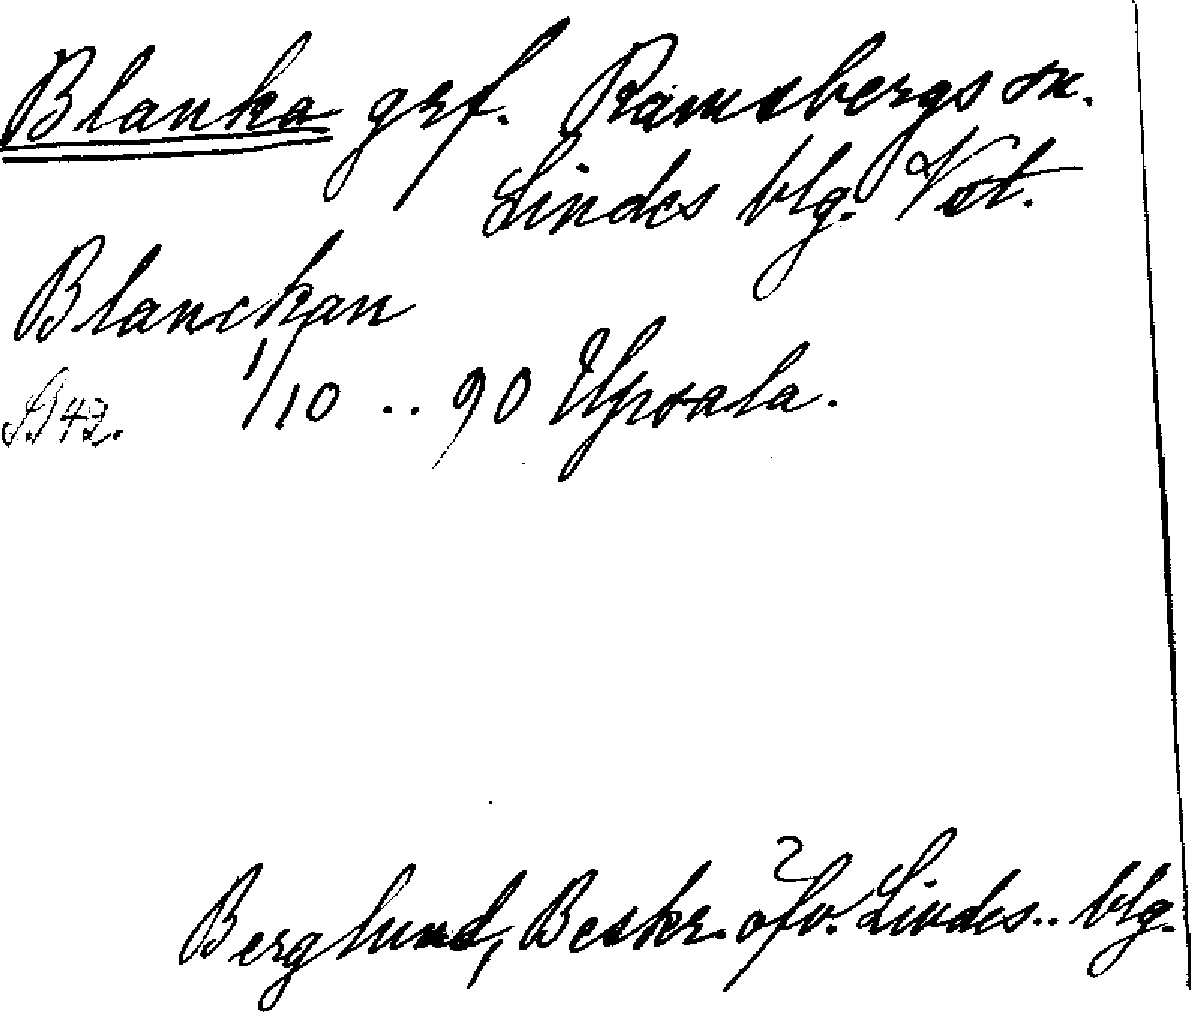 Blanka grf. Ramsbergs sn.
Lindes blg. Vstl.
Blanckan
1/10 .. 90 Upsala.
S. 42.
Berglund, Beskr. öfv. Lindes .. blg.